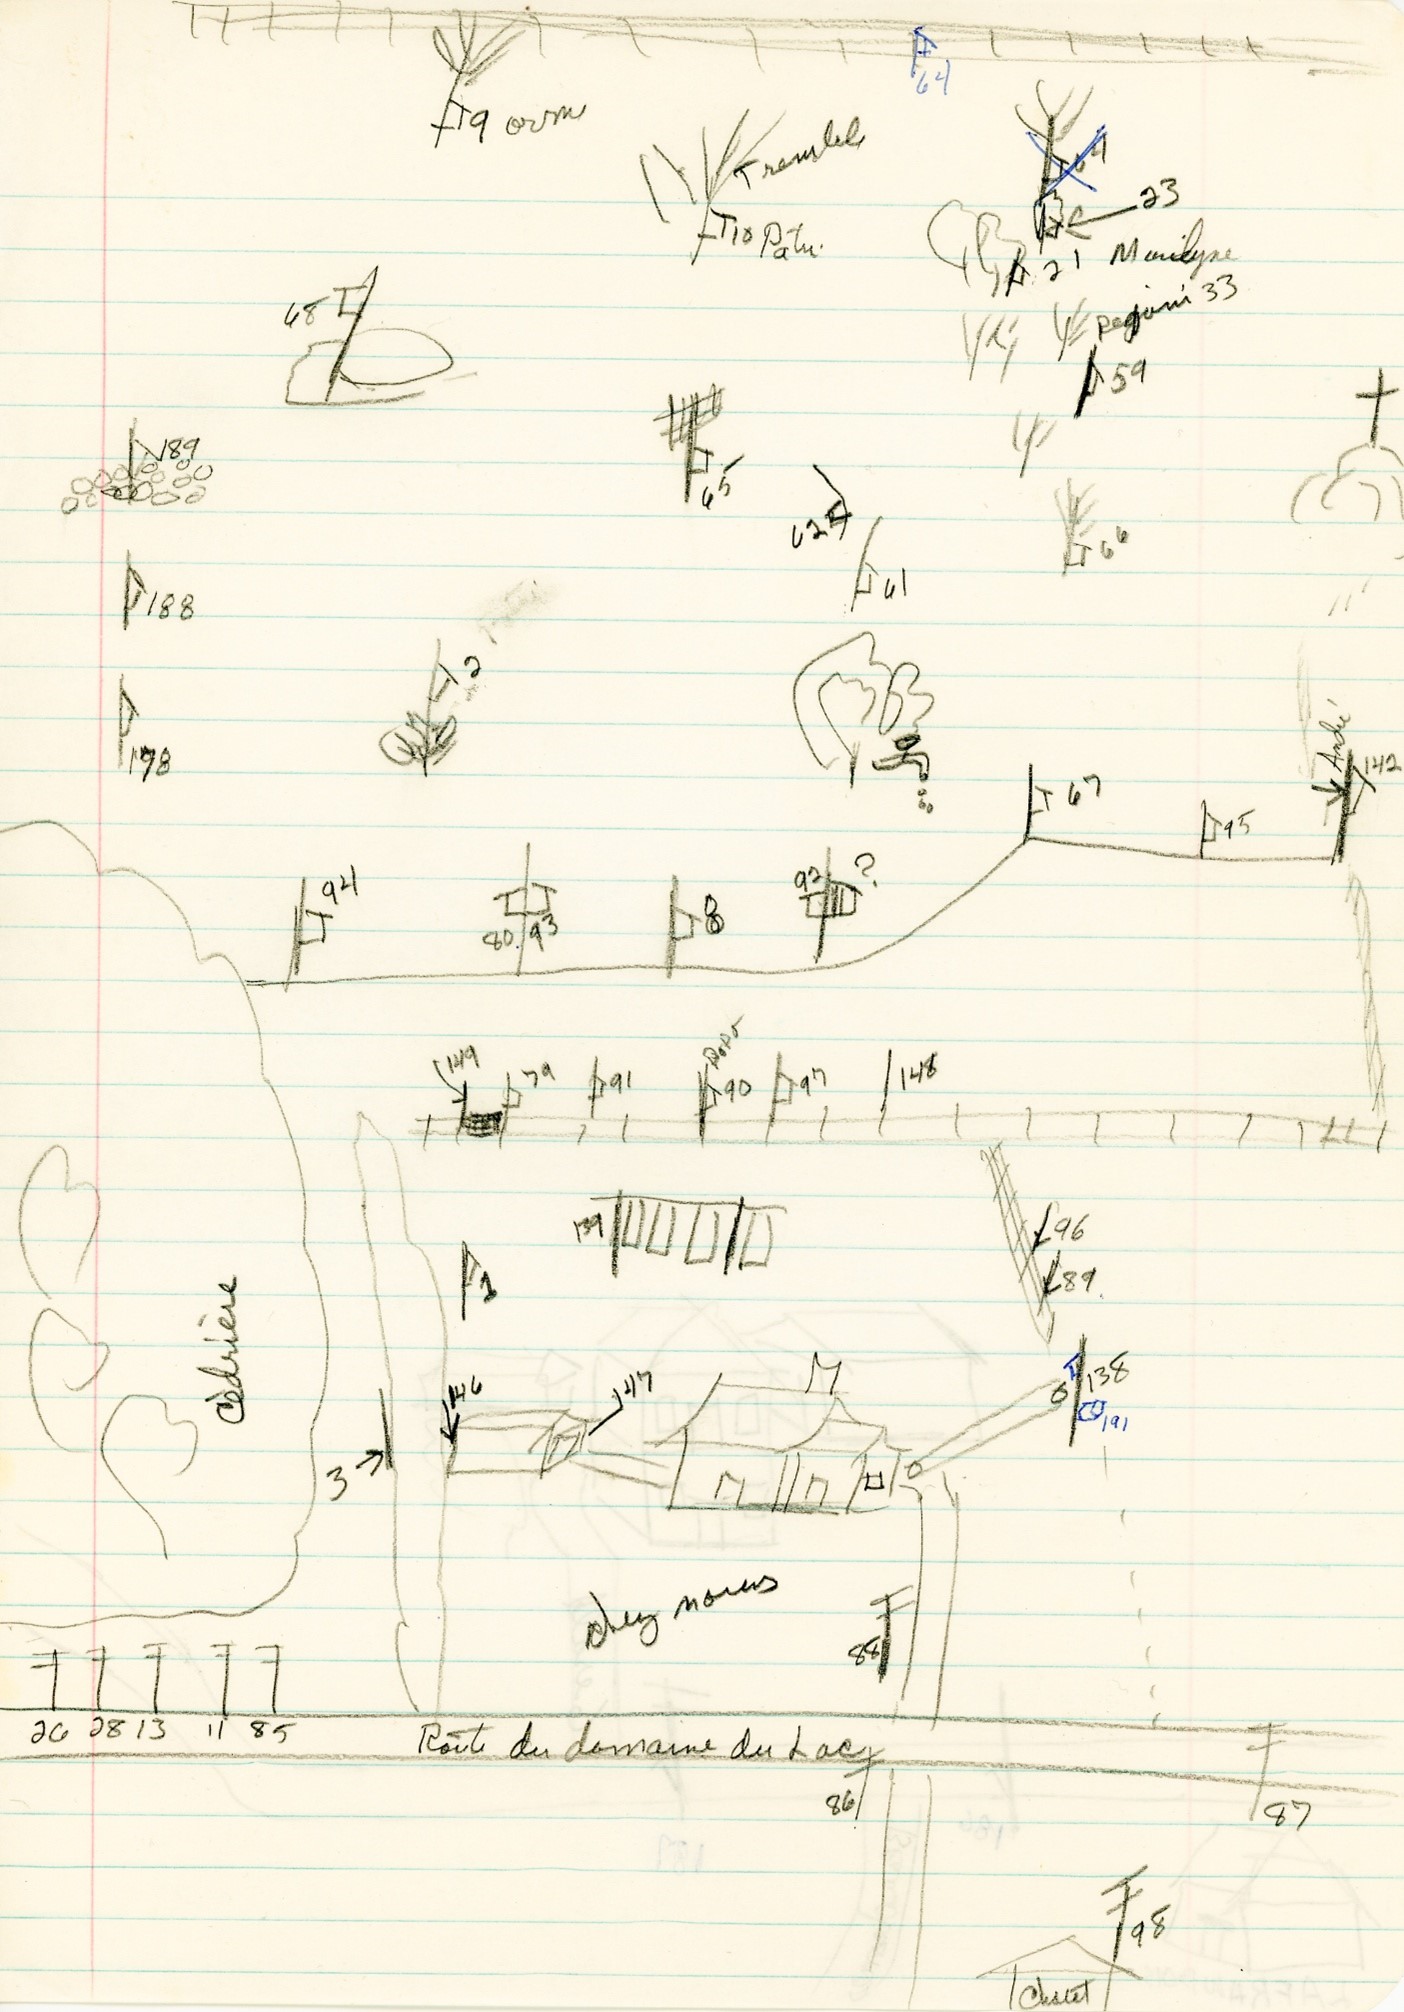 64
9 orm
Tremble
64
23
10 Patu.
21 Marilyne
33
68
59
189
65
62
66
61
188
2
André
198
142
67
95
94
92 ?
80 93
8
149
79
91
90
97
148
139
96
1
89
138
146
147
191
3
Cèdrière
chez nous
88
26 28 13 11 85
Route du domaine du Lac
86
87
98
Chalet